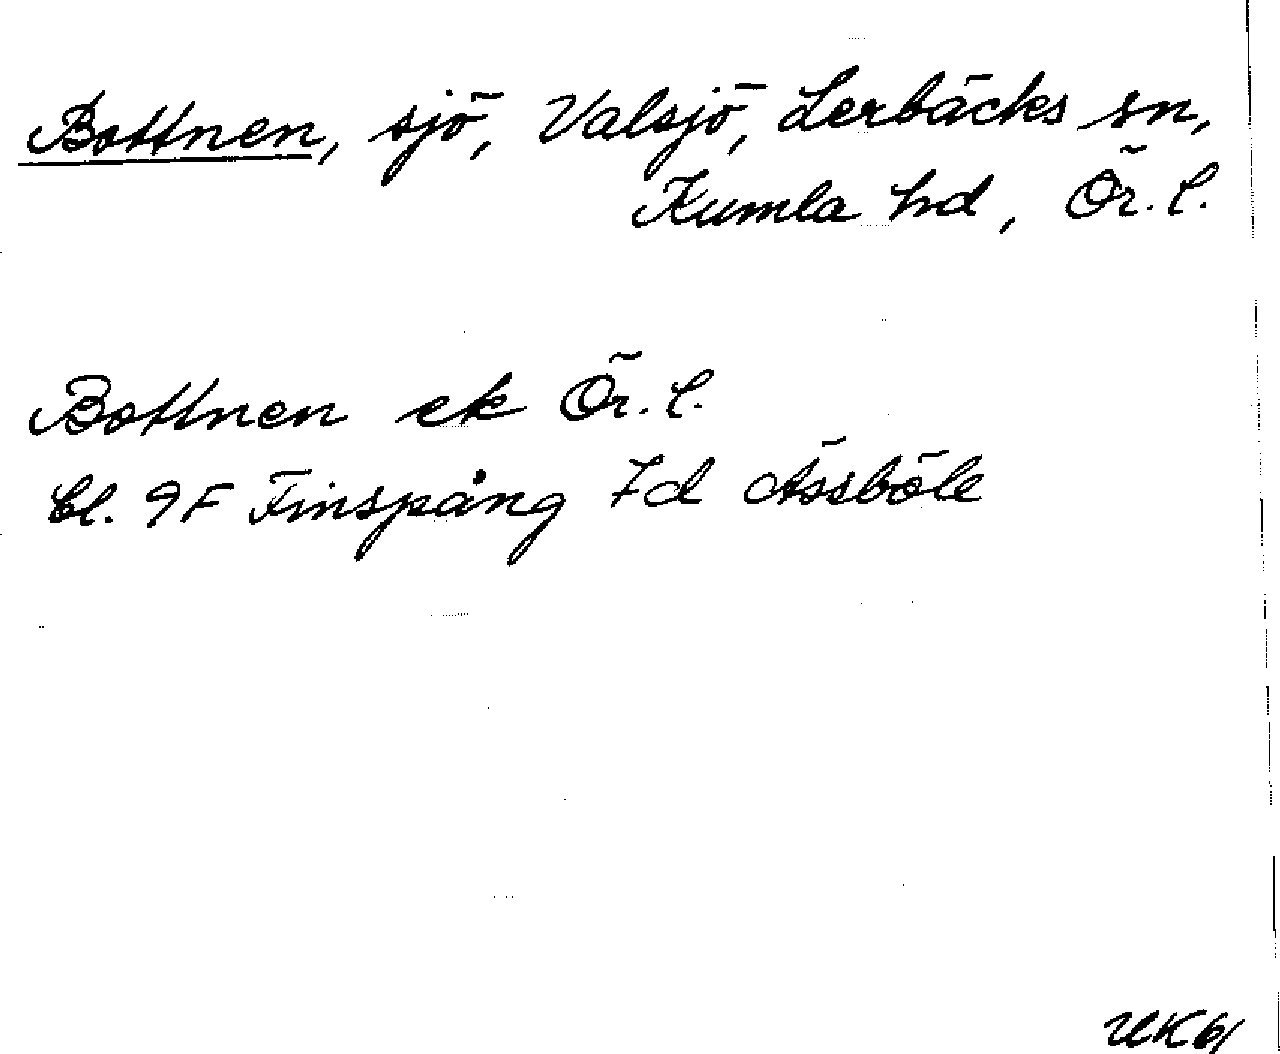 Bottnen, sjö, Valsjö, Lerbäcks sn,
Kumla hd, Ör. l.
Bottnen ek Ör. l.
bl. 9F Finspång 7d Åssböle
UK61